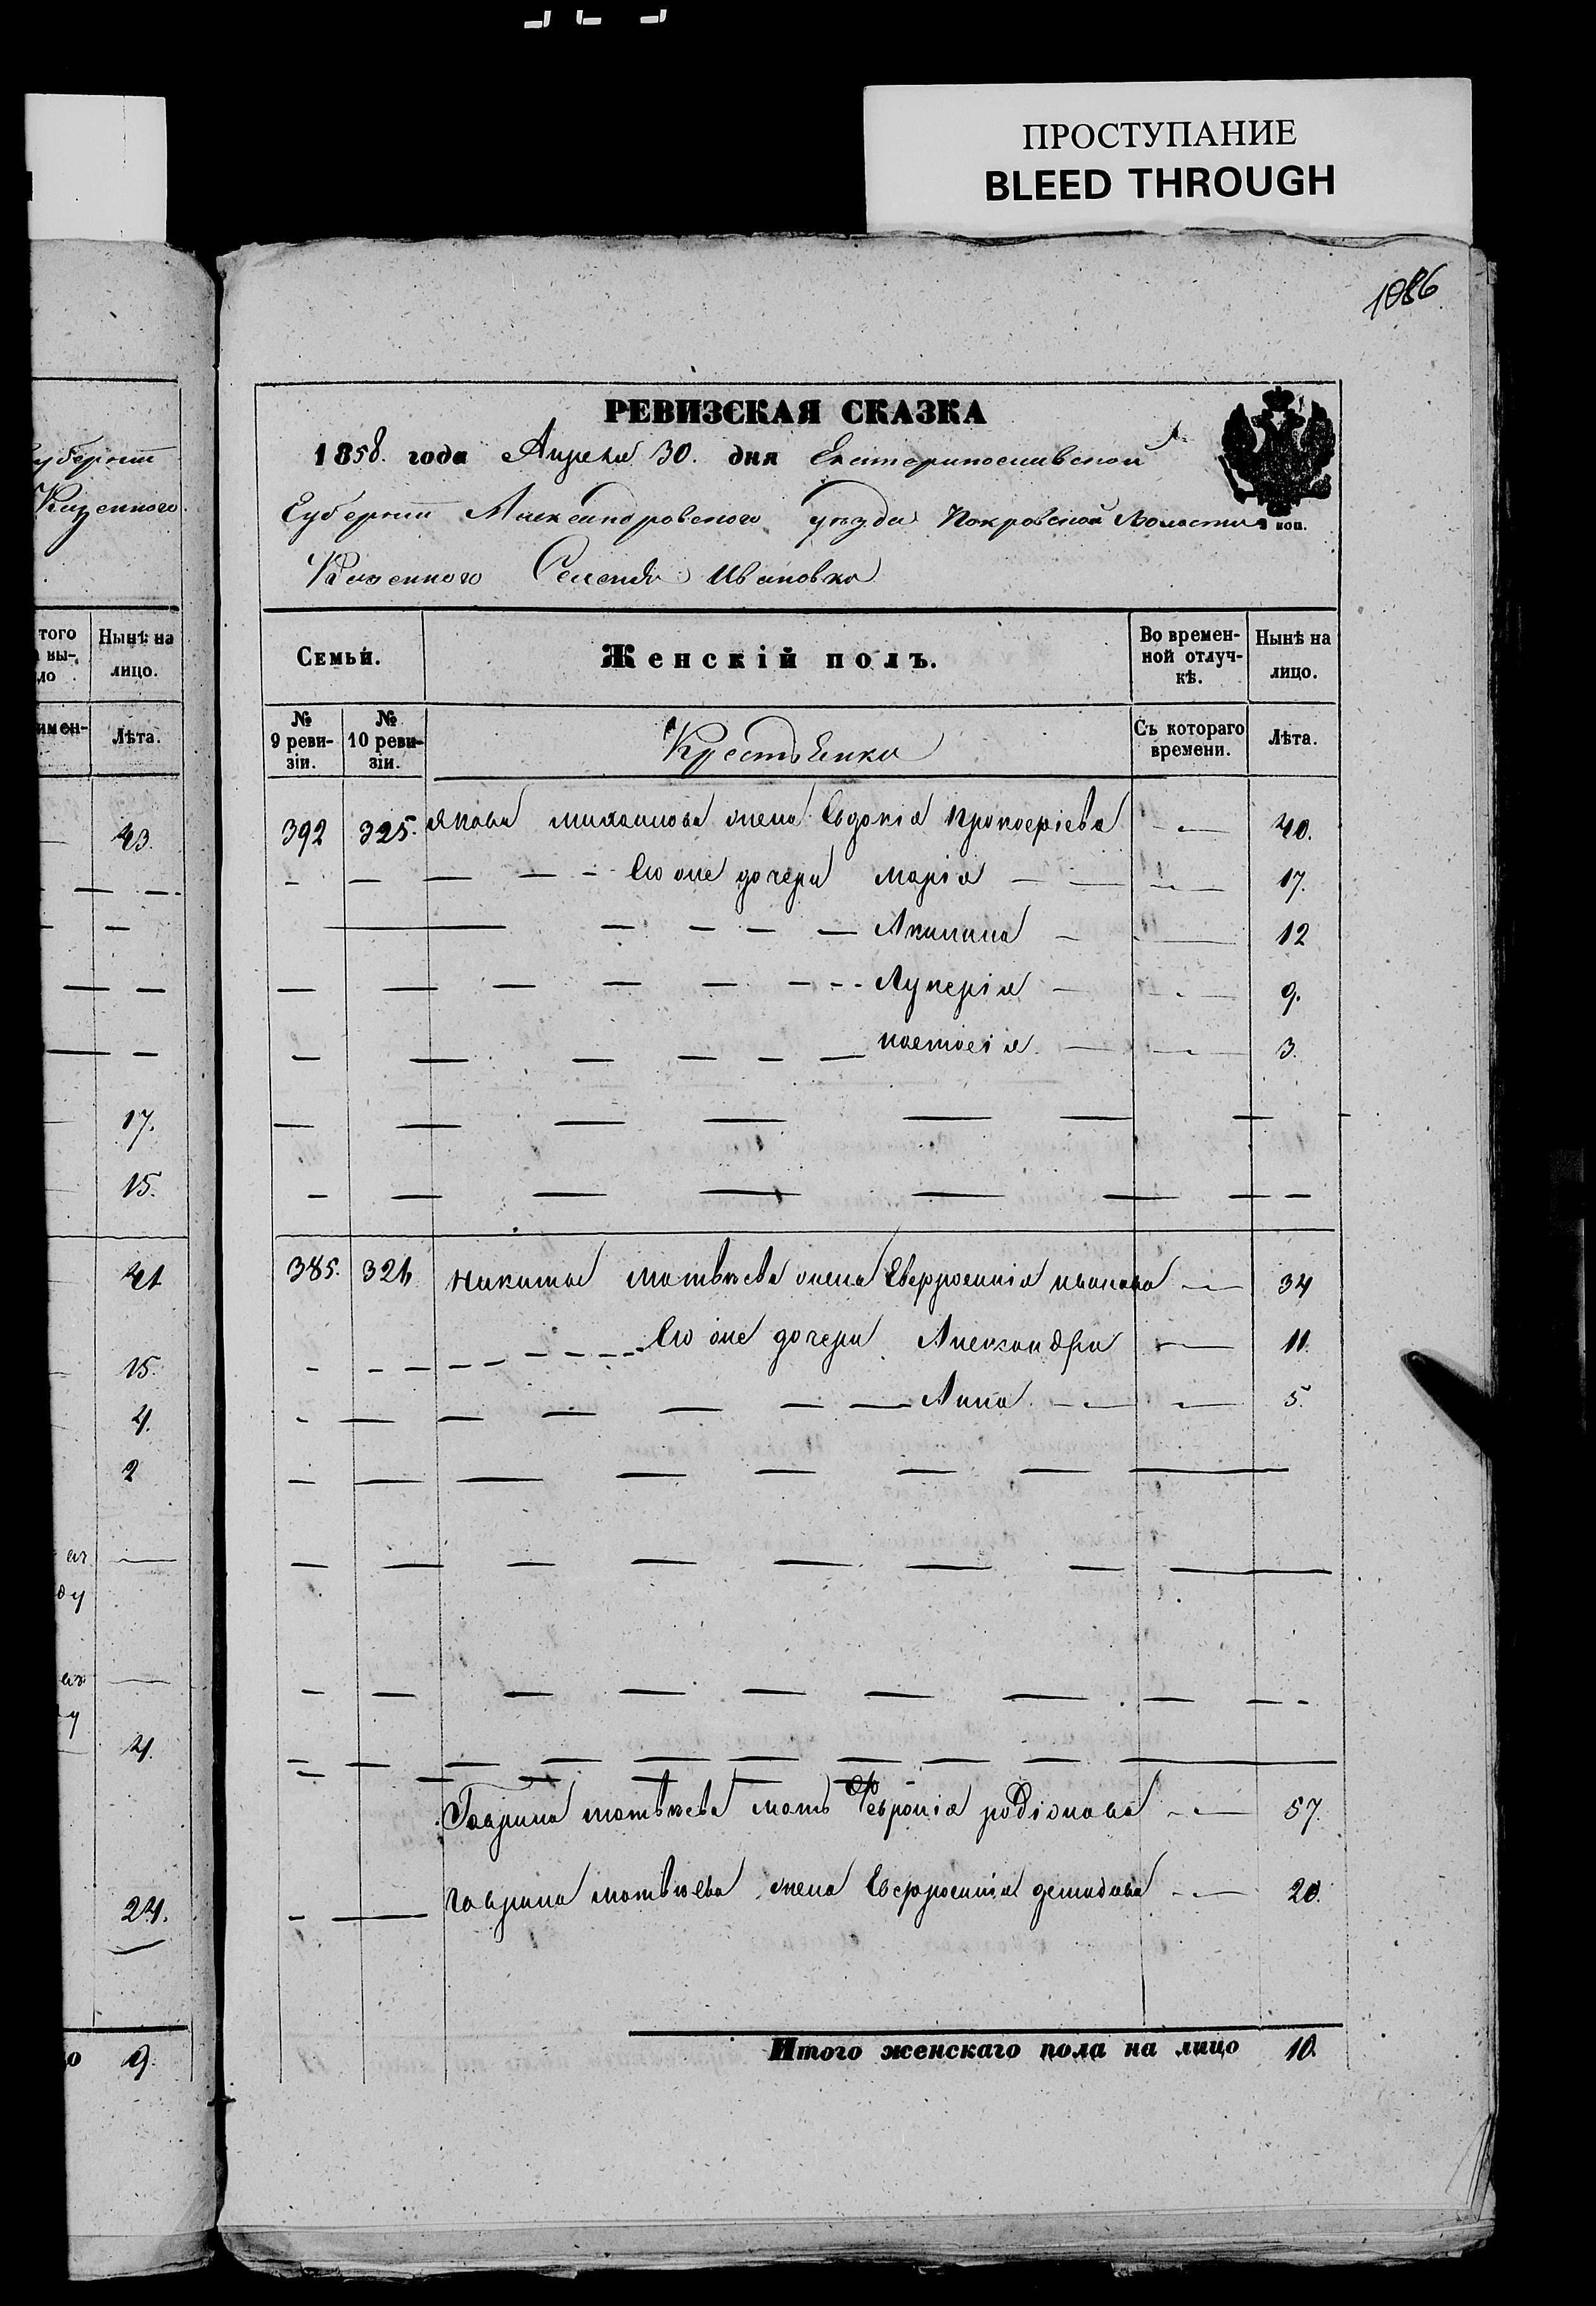 ПРОСТУПАНИЕ
BLEED THROUGH
1086
РЕВИЗСКАЯ СКАЗКА
1858. года Апреля 30. дня Екатеринославской
Губернии Александровского уезда Покровской Волости
коп.
Казенного Селения Ивановка
губернии
Казенного
того
вы-
ло
Нынѣ на
лицо.
имен-
Лѣта.
Семьи.
Женскій полъ.
Во времен-
ной отлуч-
кѣ.
Нынѣ на
лицо.
№
9 реви-
зіи.
№
10 реви-
зіи.
Крестьянки
Съ котораго
времени.
Лѣта.
392 325. Якова Михаилова жена Евдокія Прокофіева 40.
Его же дочери Марія 17.
Акилина 12
Лукерія 9.
Настасія 3.
385. 326 Никиты Матвѣева жена Евфросинія Иванова 34
Его же дочери Александра 11.
Анна 5.
Гаврила Матвѣева мать Февронія Родіонова 57.
Гаврила Матвѣева жена Евфросинія Демидова 20.
Итого женскаго пола на лицо 10.
43.
17.
15.
41
15.
4.
2
4.
24.
9.